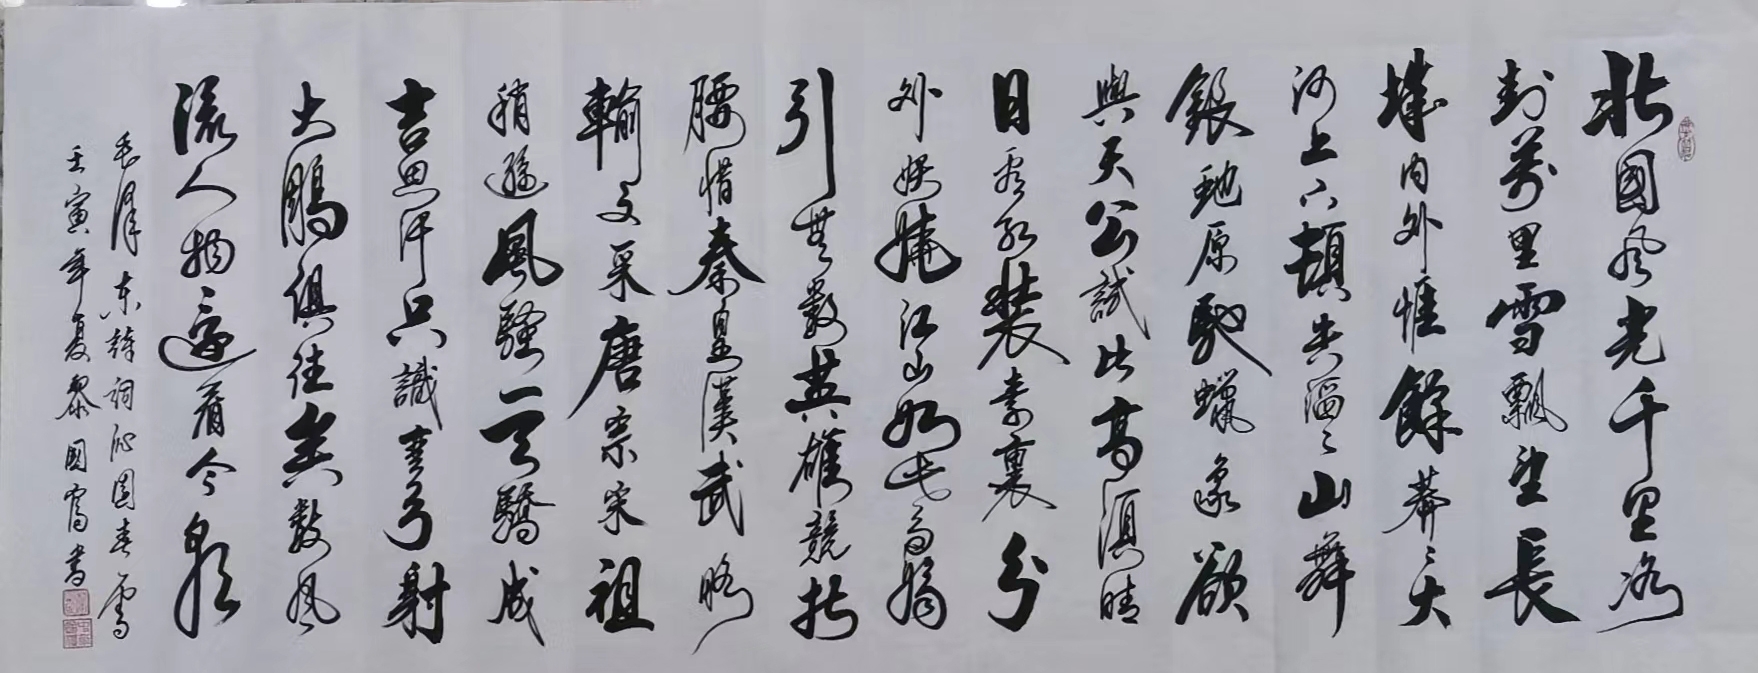 北國風光千里冰
封萬里雪飄望長
城內外惟餘莽〻大
河上下頓失滔〻山舞
銀蛇原馳蠟象欲
與天公試比高須晴
日看紅裝素裹分
外妖嬈江山如此多嬌
引無數英雄競折
腰惜秦皇漢武略
輸文采唐宗宋祖
稍遜風騷一天驕成
吉思汗只識彎弓射
大鵰俱往矣數風
流人物還看今朝
毛澤東詩詞沁園春雪
壬寅年夏黎國富書